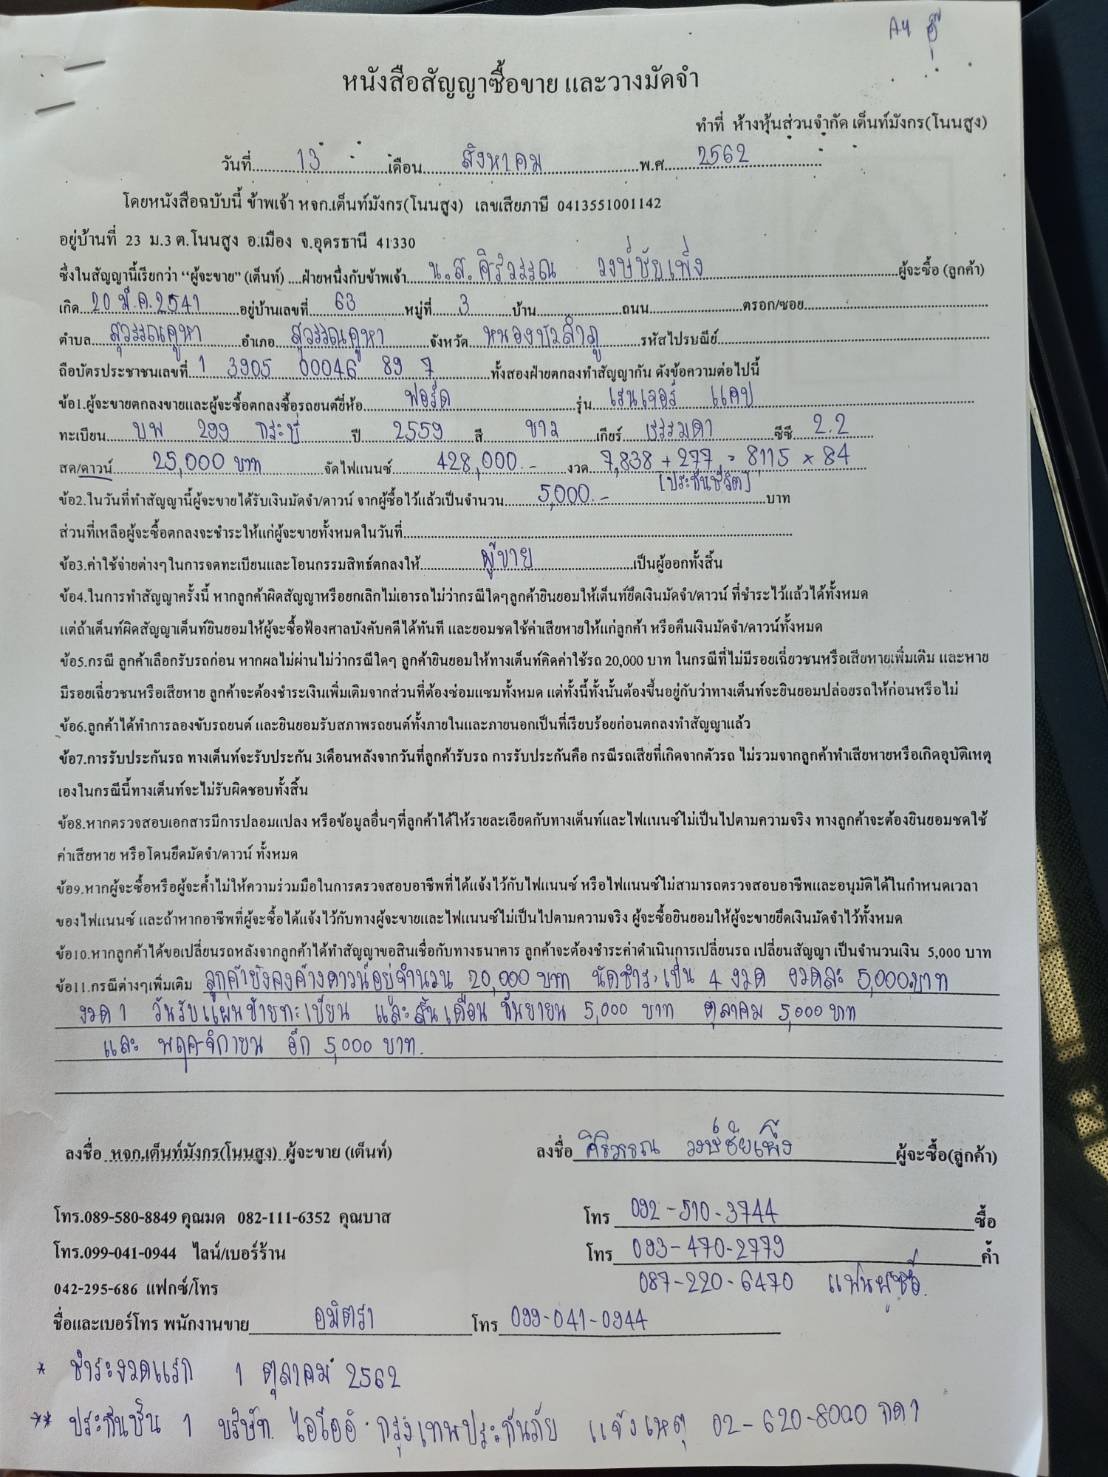 AY อุ๊
หนังสือสัญญาซื้อขาย และวางมัดจำ
ทำที่ ห้างหุ้นส่วนจำกัด เต็นท์มังกร(โนนสูง)
วันที่ 13 เดือน สิงหาคม พ.ศ. 2562
โดยหนังสือฉบับนี้ ข้าพเจ้า หจก.เต็นท์มังกร(โนนสูง) เลขเสียภาษี 0413551001142
อยู่บ้านที่ 23 ม.3 ต.โนนสูง อ.เมือง จ.อุดรธานี 41330
ซึ่งในสัญญานี้เรียกว่า "ผู้จะขาย" (เต็นท์) ....ฝ่ายหนึ่งกับข้าพเจ้า น.ส.ศิริวรรณ วงษ์ชัยเพ็ง ผู้จะซื้อ (ลูกค้า)
เกิด 20 มี.ค.2541 อยู่บ้านเลขที่ 63 หมู่ที่ 3 บ้าน ถนน ตรอก/ซอย
ตำบล สุวรรณคูหา อำเภอ สุวรรณคูหา จังหวัด หนองบัวลำภู รหัสไปรษณีย์
ถือบัตรประชาชนเลขที่ 1 3905 00046 89 7 ทั้งสองฝ่ายตกลงทำสัญญากัน ดังข้อความต่อไปนี้
ข้อ1.ผู้จะขายตกลงขายและผู้จะซื้อตกลงซื้อรถยนต์ยี่ห้อ ฟอร์ด รุ่น เรนเจอร์ แคป
ทะเบียน บพ 299 กระบี่ ปี 2559 สี ขาว เกียร์ ธรรมดา ซีซี 2.2
สด/ดาวน์ 25,000 บาท จัดไฟแนนซ์ 428,000.- งวด 7,838 + 277 = 8115 × 84
[ประกันชีวิต]
ข้อ2.ในวันที่ทำสัญญานี้ผู้จะขายได้รับเงินมัดจำ/ดาวน์ จากผู้ซื้อไว้แล้วเป็นจำนวน 5,000.- บาท
ส่วนที่เหลือผู้จะซื้อตกลงจะชำระให้แก่ผู้จะขายทั้งหมดในวันที่
ข้อ3.ค่าใช้จ่ายต่างๆในการจดทะเบียนและโอนกรรมสิทธ์ตกลงให้ ผู้ขาย เป็นผู้ออกทั้งสิ้น
ข้อ4.ในการทำสัญญาครั้งนี้ หากลูกค้าผิดสัญญาหรือยกเลิกไม่เอารถไม่ว่ากรณีใดๆลูกค้ายินยอมให้เต็นท์ยึดเงินมัดจำ/ดาวน์ ที่ชำระไว้แล้วได้ทั้งหมด
แต่ถ้าเต็นท์ผิดสัญญาเต็นท์ยินยอมให้ผู้จะซื้อฟ้องศาลบังคับคดีได้ทันที และยอมชดใช้ค่าเสียหายให้แก่ลูกค้า หรือคืนเงินมัดจำ/ดาวน์ทั้งหมด
ข้อ5.กรณี ลูกค้าเลือกรับรถก่อน หากผลไม่ผ่านไม่ว่ากรณีใดๆ ลูกค้ายินยอมให้ทางเต็นท์คิดค่าใช้รถ 20,000 บาท ในกรณีที่ไม่มีรอยเฉี่ยวชนหรือเสียหายเพิ่มเติม และหาย
มีรอยเฉี่ยวชนหรือเสียหาย ลูกค้าจะต้องชำระเงินเพิ่มเติมจากส่วนที่ต้องซ่อมแซมทั้งหมด แต่ทั้งนี้ทั้งนั้นต้องขึ้นอยู่กับว่าทางเต็นท์จะยินยอมปล่อยรถให้ก่อนหรือไม่
ข้อ6.ลูกค้าได้ทำการลองขับรถยนต์ และยินยอมรับสภาพรถยนต์ทั้งภายในและภายนอกเป็นที่เรียบร้อยก่อนตกลงทำสัญญาแล้ว
ข้อ7.การรับประกันรถ ทางเต็นท์จะรับประกัน 3เดือนหลังจากวันที่ลูกค้ารับรถ การรับประกันคือ กรณีรถเสียที่เกิดจากตัวรถ ไม่รวมจากลูกค้าทำเสียหายหรือเกิดอุบัติเหตุ
เองในกรณีนี้ทางเต็นท์จะไม่รับผิดชอบทั้งสิ้น
ข้อ8.หากตรวจสอบเอกสารมีการปลอมแปลง หรือข้อมูลอื่นๆที่ลูกค้าได้ให้รายละเอียดกับทางเต็นท์และไฟแนนซ์ไม่เป็นไปตามความจริง ทางลูกค้าจะต้องยินยอมชดใช้
ค่าเสียหาย หรือโดนยึดมัดจำ/ดาวน์ ทั้งหมด
ข้อ9.หากผู้จะซื้อหรือผู้จะค้ำไม่ให้ความร่วมมือในการตรวจสอบอาชีพที่ได้แจ้งไว้กับไฟแนนซ์ หรือไฟแนนซ์ไม่สามารถตรวจสอบอาชีพและอนุมัติได้ในกำหนดเวลา
ของไฟแนนซ์ และถ้าหากอาชีพที่ผู้จะซื้อได้แจ้งไว้กับทางผู้จะขายและไฟแนนซ์ไม่เป็นไปตามความจริง ผู้จะซื้อยินยอมให้ผู้จะขายยึดเงินมัดจำไว้ทั้งหมด
ข้อ10.หากลูกค้าได้ขอเปลี่ยนรถหลังจากลูกค้าได้ทำสัญญาขอสินเชื่อกับทางธนาคาร ลูกค้าจะต้องชำระค่าดำเนินการเปลี่ยนรถ เปลี่ยนสัญญา เป็นจำนวนเงิน 5,000 บาท
ข้อ11.กรณีต่างๆเพิ่มเติม ลูกค้ายังคงค้างดาวน์อยู่จำนวน 20,000 บาท นัดชำระเป็น 4 งวด งวดละ 5,000บาท
งวด 1 วันรับแผ่นป้ายทะเบียน และสิ้นเดือน กันยายน 5,000 บาท ตุลาคม 5,000 บาท
และ พฤศจิกายน อีก 5,000 บาท.
ลงชื่อ หจก.เต็นท์มังกร(โนนสูง) ผู้จะขาย (เต็นท์) ลงชื่อ ศิริวรรณ วงษ์ชัยเพ็ง ผู้จะซื้อ(ลูกค้า)
โทร.089-580-8849 คุณมด 082-111-6352 คุณบาส โทร 092-510-3744 ซื้อ
โทร.099-041-0944 ไลน์/เบอร์ร้าน โทร 093-470-2779 ค้ำ
042-295-686 แฟกซ์/โทร 087-220-6470 แฟนผู้ซื้อ.
ชื่อและเบอร์โทร พนักงานขาย อมิตรา โทร 099-041-0944
* ชำระงวดแรก 1 ตุลาคม 2562
** ประกันชั้น 1 บริษัท ไอโออิ กรุงเทพประกันภัย แจ้งเหตุ 02-620-8000 กด1